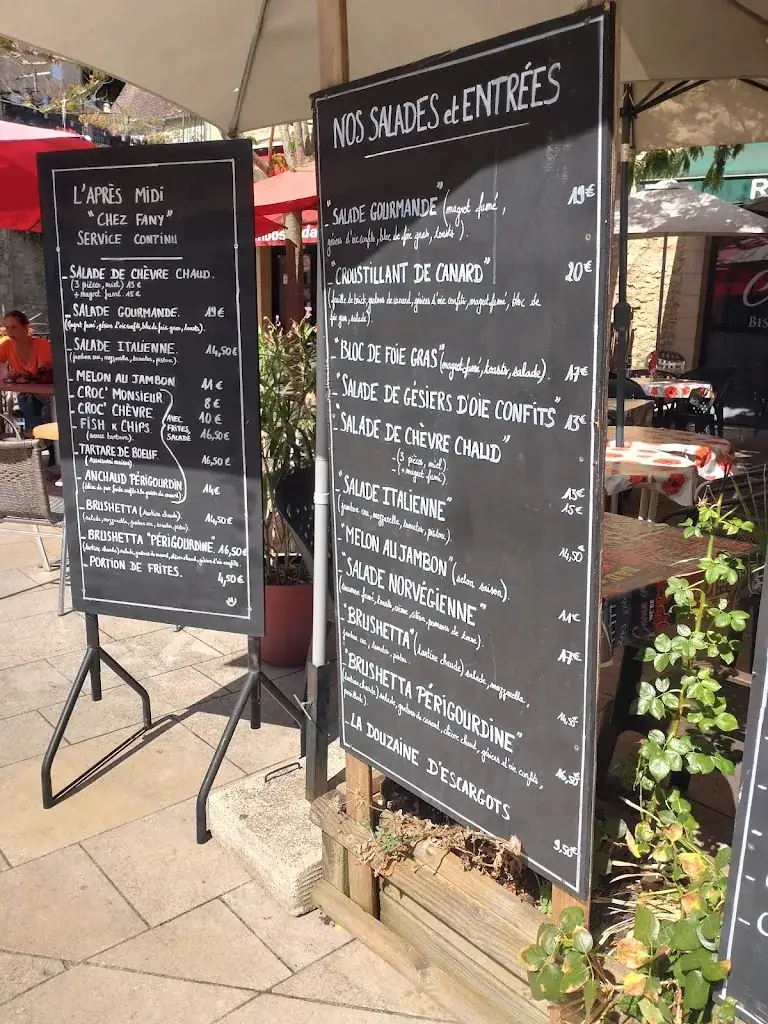 L'APRÈS MIDI
"CHEZ FANY"
SERVICE CONTINU
- SALADE DE CHÈVRE CHAUD.
(3 pièces, miel) 13 €
+ magret fumé. 15 €
- SALADE GOURMANDE. 19€
(Magret fumé, gésiers d'oie confits, bloc de foie gras, toasts).
- SALADE ITALIENNE. 14,50€
(jambon cru, mozzarella, tomates, pistou).
- MELON AU JAMBON 11 €
- CROC' MONSIEUR 8 €
- CROC' CHÈVRE 10 €
- FISH & CHIPS 16,50€
(sauce tartare).
AVEC
FRITES,
SALADE
- TARTARE DE BOEUF. 16,50€
- ANCHAUD PÉRIGOURDIN 14€
- BRUSHETTA (tartine chaude) 14,50€
(salade, mozzarella, jambon cru, tomates, pistou).
- BRUSHETTA "PÉRIGOURDINE". 16,50€
(tartine chaude) salade, gésiers d'oie confits.
- PORTION DE FRITES. 4,50€
NOS SALADES et ENTRÉES
- "SALADE GOURMANDE" (magret fumé, 19€
gésiers d'oie confits, bloc de foie gras, toasts).
- "CROUSTILLANT DE CANARD" 20€
(feuille de brick, gésiers d'oie confits, magret fumé, bloc de
foie gras, salade).
- "BLOC DE FOIE GRAS" (magret fumé, toasts, salade). 17€
- "SALADE DE GÉSIERS D'OIE CONFITS" 13€
- "SALADE DE CHÈVRE CHAUD"
- (3 pièces, miel). 13€
- (+ magret fumé). 15€
- "SALADE ITALIENNE"
(jambon cru, mozzarella, tomates, pistou). 14,50€
- "MELON AU JAMBON" (selon saison). 11€
- "SALADE NORVÉGIENNE"
(saumon fumé, toasts, crème, citron, pommes de terre). 17€
- "BRUSHETTA" (tartine chaude) salade, mozzarella,
jambon cru, tomates, pistou. 14,50€
- "BRUSHETTA PÉRIGOURDINE"
(tartine chaude) salade, chèvre chaud, gésiers d'oie confits, 16,50€
- LA DOUZAINE D'ESCARGOTS 9,50€
R
BIS